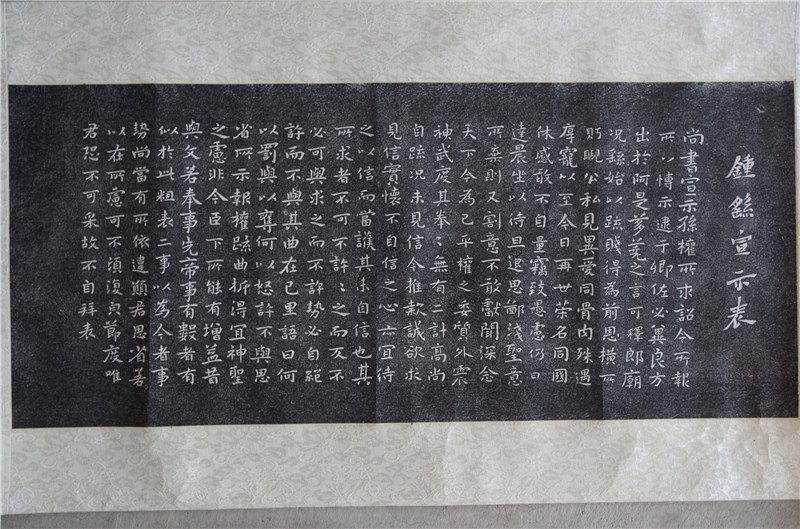 鍾繇宣示表
尚書宣示孫權所求詔令所報
所以博示逮于卿佐必冀良方
出於阿是芻蕘之言可擇郎廟
況繇始以疏賤得為前恩橫所
眄睨公私見異愛同骨肉殊遇
厚寵以至今日再世榮名同國
休慼敢不自量竊致愚慮仍日
達晨坐以待旦退思鄙淺聖意
所棄則又割意不敢獻聞深念
天下今為已平權之委質外震
神武度其拳〻無有二計高尚
自疏況未見信今推款誠欲求
見信實懷不自信之心亦宜待
之以信而當護其未自信也其
所求者不可不許〻之而反不
必可與求之而不許勢必自絕
許而不與其曲在己里語曰何
以罰與以奪何以怒許不與思
省所示報權疏曲折得宜神聖
之慮非今臣下所能有增益昔
與文若奉事先帝事有數者有
似於此粗表二事以為今者事
勢尚當有所依違願君思省若
以在所慮可不須復皃節度唯
君恐不可采故不自拜表